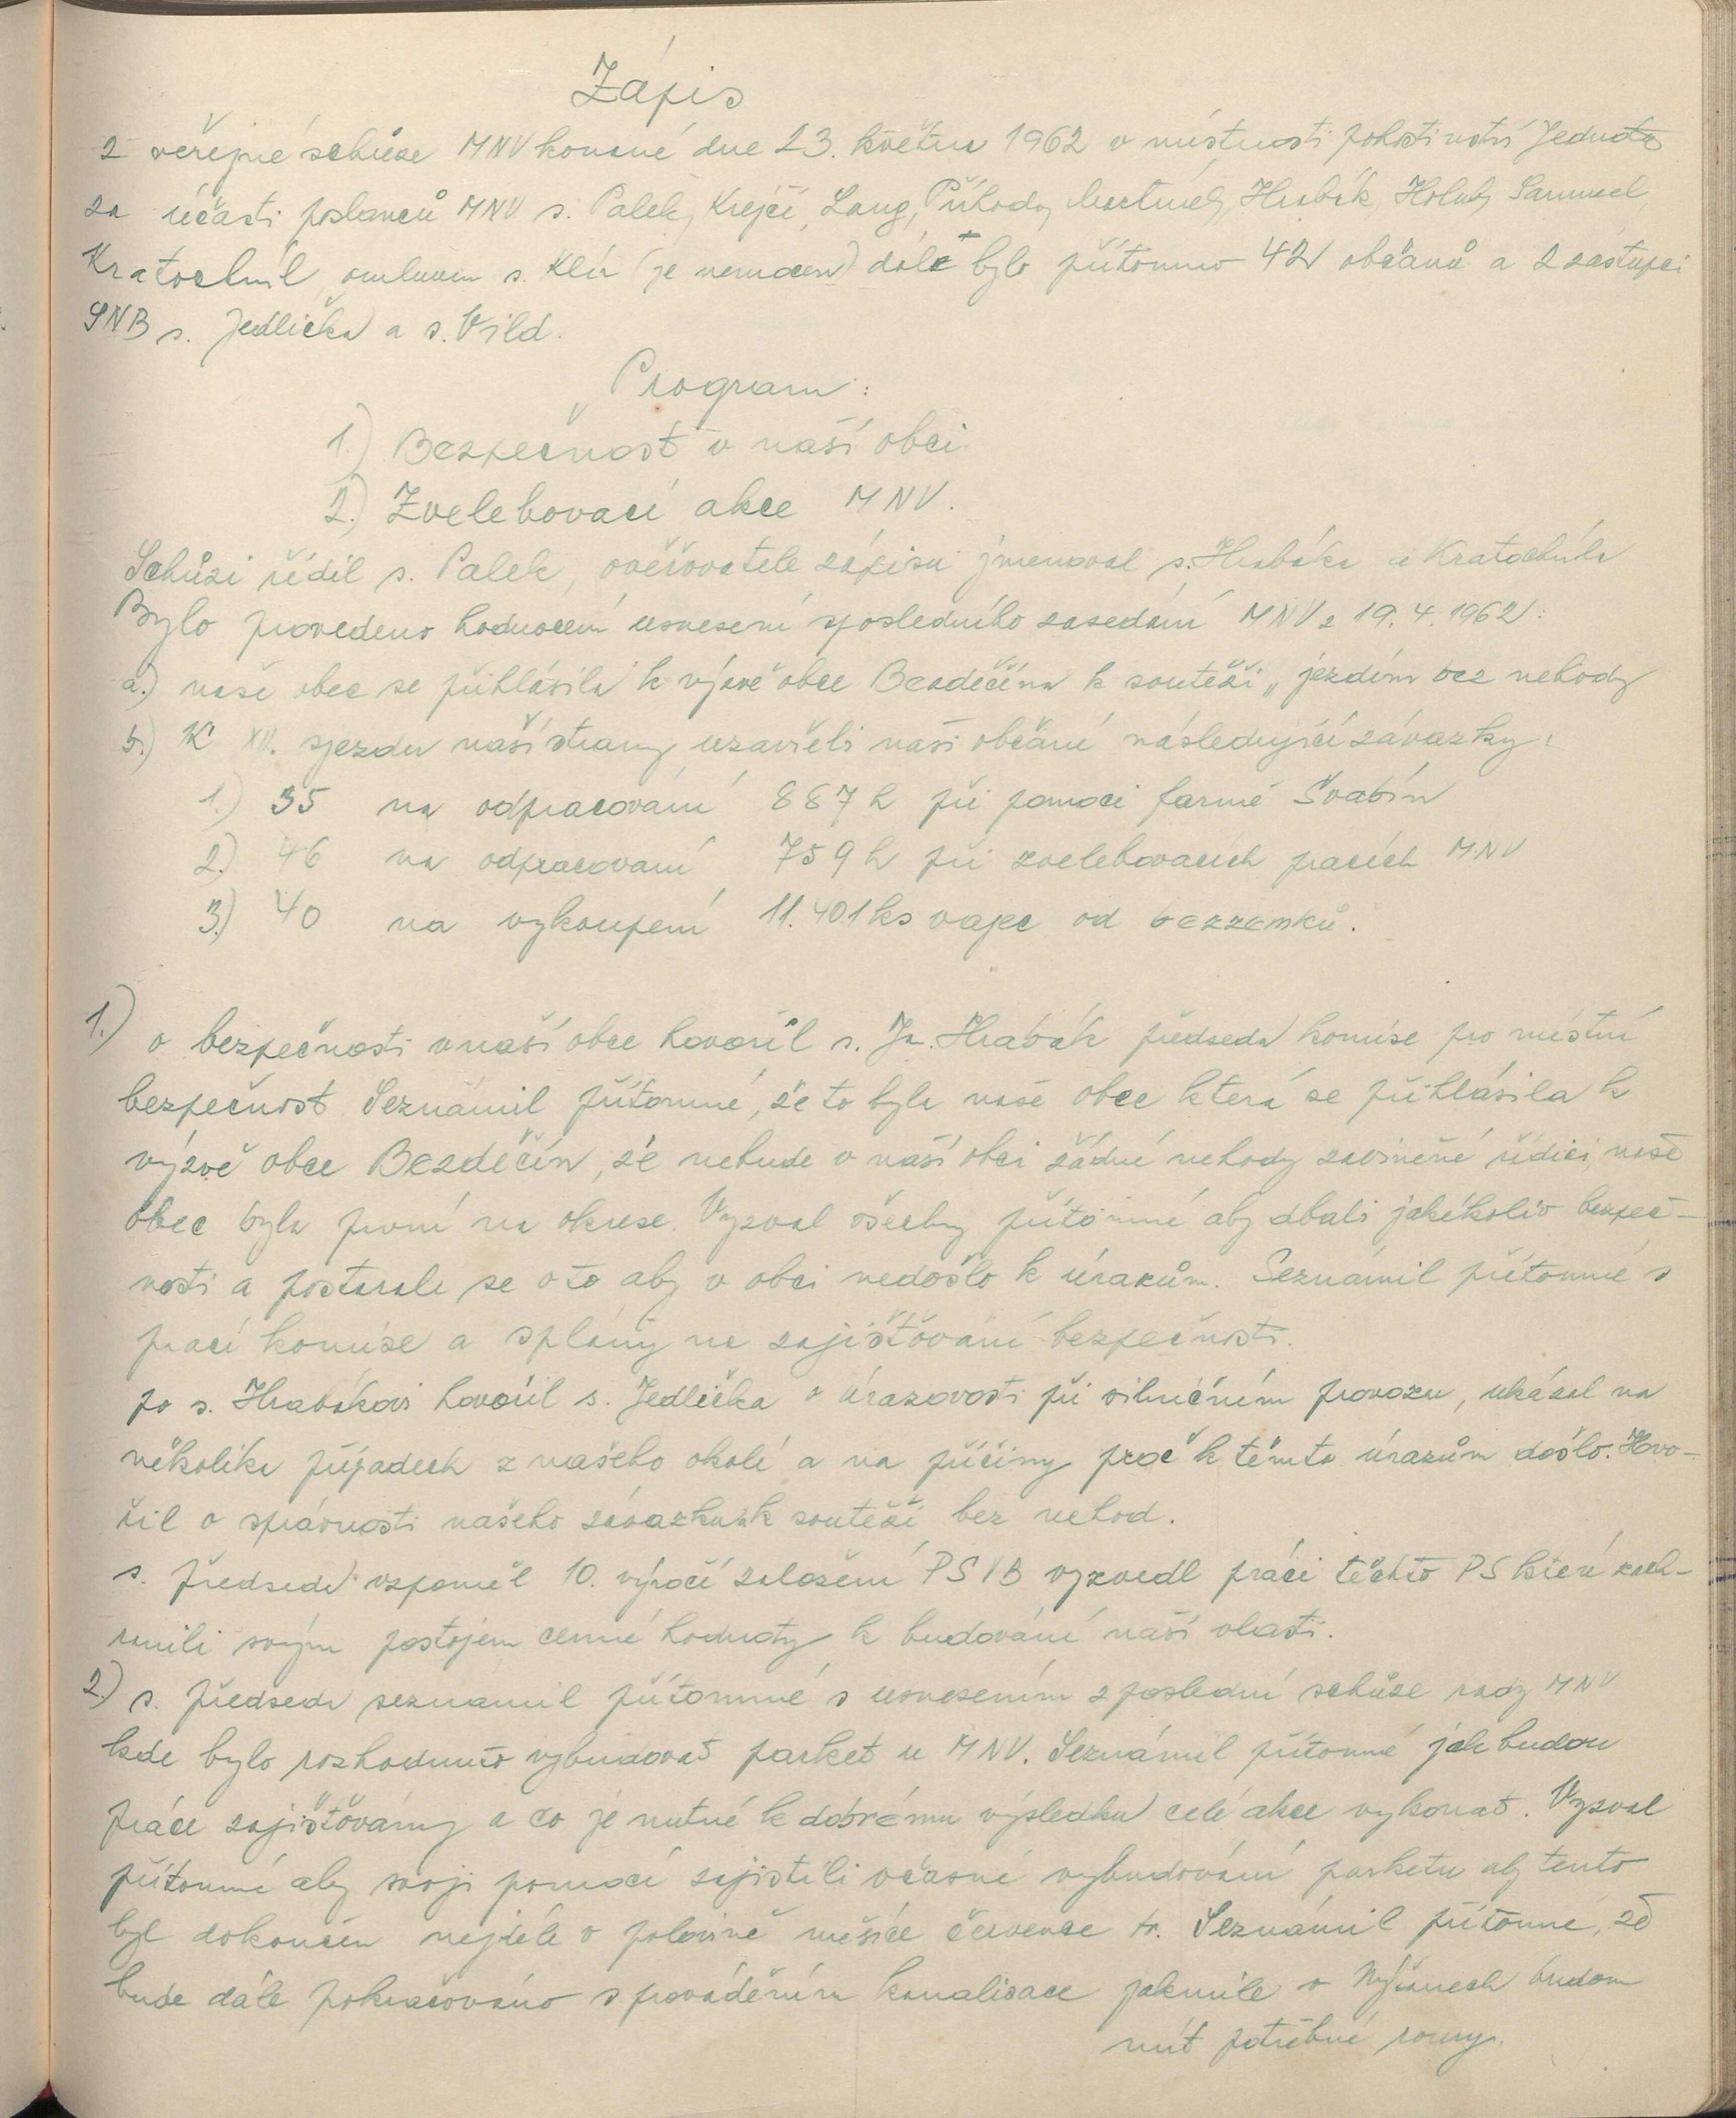 Zápis
z veřejné schůze MNV konané dne 23. května 1962 v místnosti pohostinství Jednota
za účasti poslanců MNV s. Palek, Krejčí, Lang, Příhoda, Hrabák, Holub, Samuel,
Kratochvíl, omluven s. Klír (je nemocen) dále bylo přítomno 42 občanů a 2 zástupci
SNB s. Jedlička a s. Vild.
Program:
1.) Bezpečnost v naší obci
2.) Zvelebovací akce MNV.
Schůzi řídil s. Palek, ověřovatele zápisu jmenoval s. Hrabáka a Kratochvíla
Bylo provedeno hodnocení usnesení z posledního zasedání MNV z 19. 4. 1962:
a.) naše obec se přihlásila k výzvě obce Bezděčína k soutěži „ jezdím bez nehody
b.) K XII. sjezdu naší strany uzavřeli naši občané následující závazky:
1.) 35 na odpracování 887 h při pomoci farmě Švabín
2.) 46 na odpracovaní 759 h při zvelebovacích pracích MNV
3.) 40 na vykoupení 11.401 ks vajec od bezzemků.
1.) o bezpečnosti v naší obce hovořil s. Ja. Hrabák předseda komise pro místní
bezpečnost. Seznámil přítomné, že to byla naše obec která se přihlásila k
výzvě obce Bezděčín, že nebude v naší obci žádné nehody zaviněné řidiči, naše
obec byla první na okrese. Vyzval všechny přítomné aby dbali jakékoliv bezpeč-
nosti a postarali se o to aby v obci nedošlo k úrazům. Seznámil přítomné s
prací komise a s plány na zajišťování bezpečnosti.
po s. Hrabákovi hovořil s. Jedlička o úrazovosti při silničním provozu, ukázal na
několika případech z našeho okolí a na příčiny proč k těmto úrazům došlo. Hovo-
řil o správnosti našeho závazku k soutěži bez nehod.
s. předseda vzpoměl 10. výročí založení PSVB vyzvedl práci těchto PS kteří zach-
ránili svým postojem cenné hodnoty k budování naší vlasti.
2.) s. předseda seznámil přítomné s usnesením z poslední schůze rady MNV
kde bylo rozhodnuto vybudovat parket u MNV. Seznámil přítomné jak budou
práce zajišťovány a co je nutné k dobrému výsledku celé akce vykonat. Vyzval
přítomné aby svoji pomocí zajistili včasné vybudování parketu aby tento
byl dokončen nejdéle v polovině měsíce července tr. Seznámil přítomné, že
bude dále pokračováno s prováděním kanalisace jakmile v Nýřanech budou
mít potřebné roury.